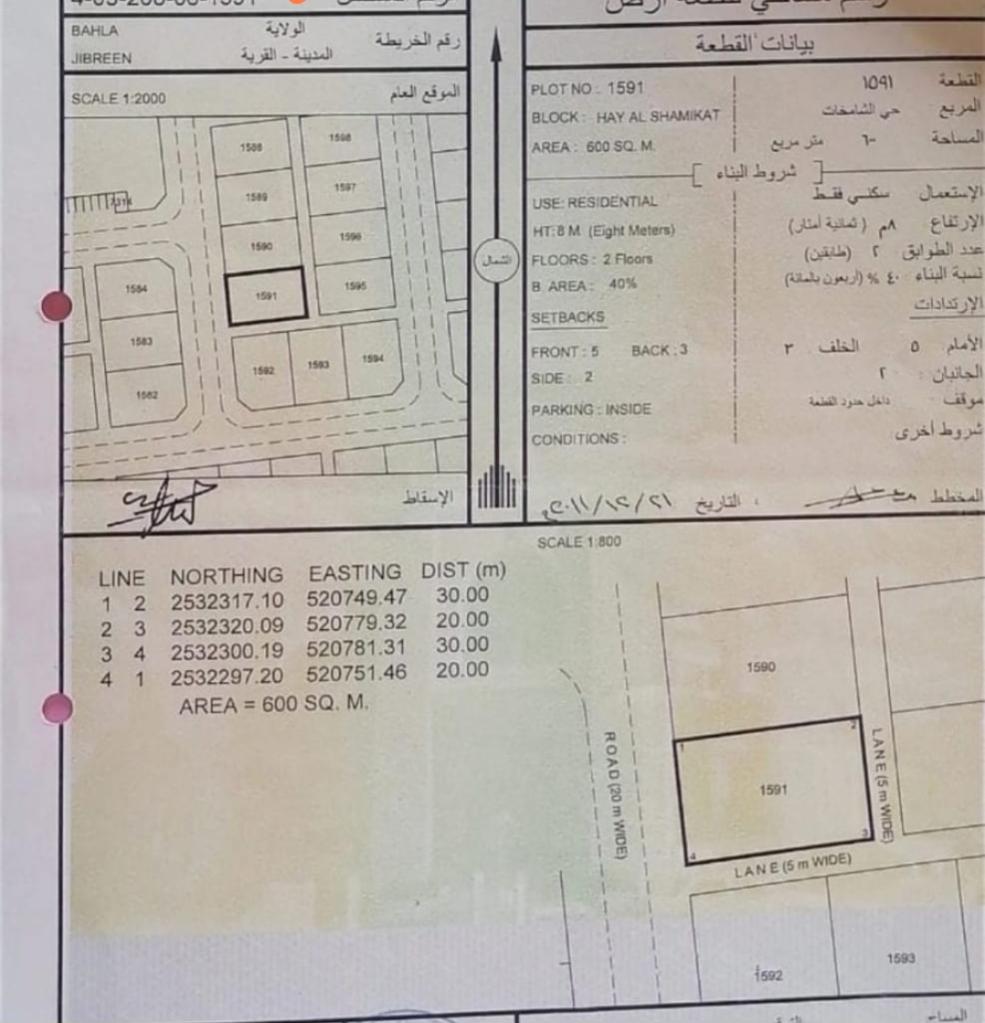 BAHLA الولاية
رقم الخريطة
JIBREEN المدينة - القرية
SCALE 1:2000 الموقع العام
1588
1598
1589
1597
1590
1596
1591
1595
1584
1583
1582
1592
1593
1594
الإسقاط
الشمال
بيانات القطعة
PLOT NO : 1591 ١٥٩١ القطعة
BLOCK : HAY AL SHAMIKAT حي الشامخات المربع
AREA : 600 SQ. M. متر مربع المساحة
شروط البناء
USE: RESIDENTIAL سكني فقط الإستعمال
HT: 8 M (Eight Meters) ٨م (ثمانية أمتار) الإرتفاع
FLOORS : 2 Floors ٢ (طابقين) عدد الطوابق
B. AREA : 40% ٤٠ % (أربعون بالمائة) نسبة البناء
SETBACKS الإرتدادات
FRONT : 5 BACK : 3 ٣ الخلف ٥ الأمام
SIDE : 2 ٢ الجانبان :
PARKING : INSIDE داخل حدود القطعة موقف
CONDITIONS : شروط أخرى
المخطط التاريخ ٢٠١١/١٢/٢١م
SCALE 1:800
LINE NORTHING EASTING DIST (m)
1 2 2532317.10 520749.47 30.00
2 3 2532320.09 520779.32 20.00
3 4 2532300.19 520781.31 30.00
4 1 2532297.20 520751.46 20.00
AREA = 600 SQ. M.
1590
1
2
1591
3
4
ROAD (20 m WIDE)
LANE (5 m WIDE)
LANE (5 m WIDE)
1592
1593